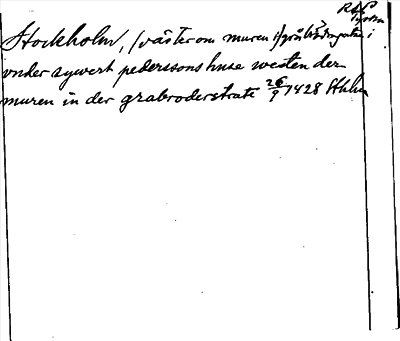 Stockholm, (väster om muren i gråbrödregatan i
vnder sywert pederssons huse westen der
muren in der grabroderstrate 26/9 1428 Sthlm